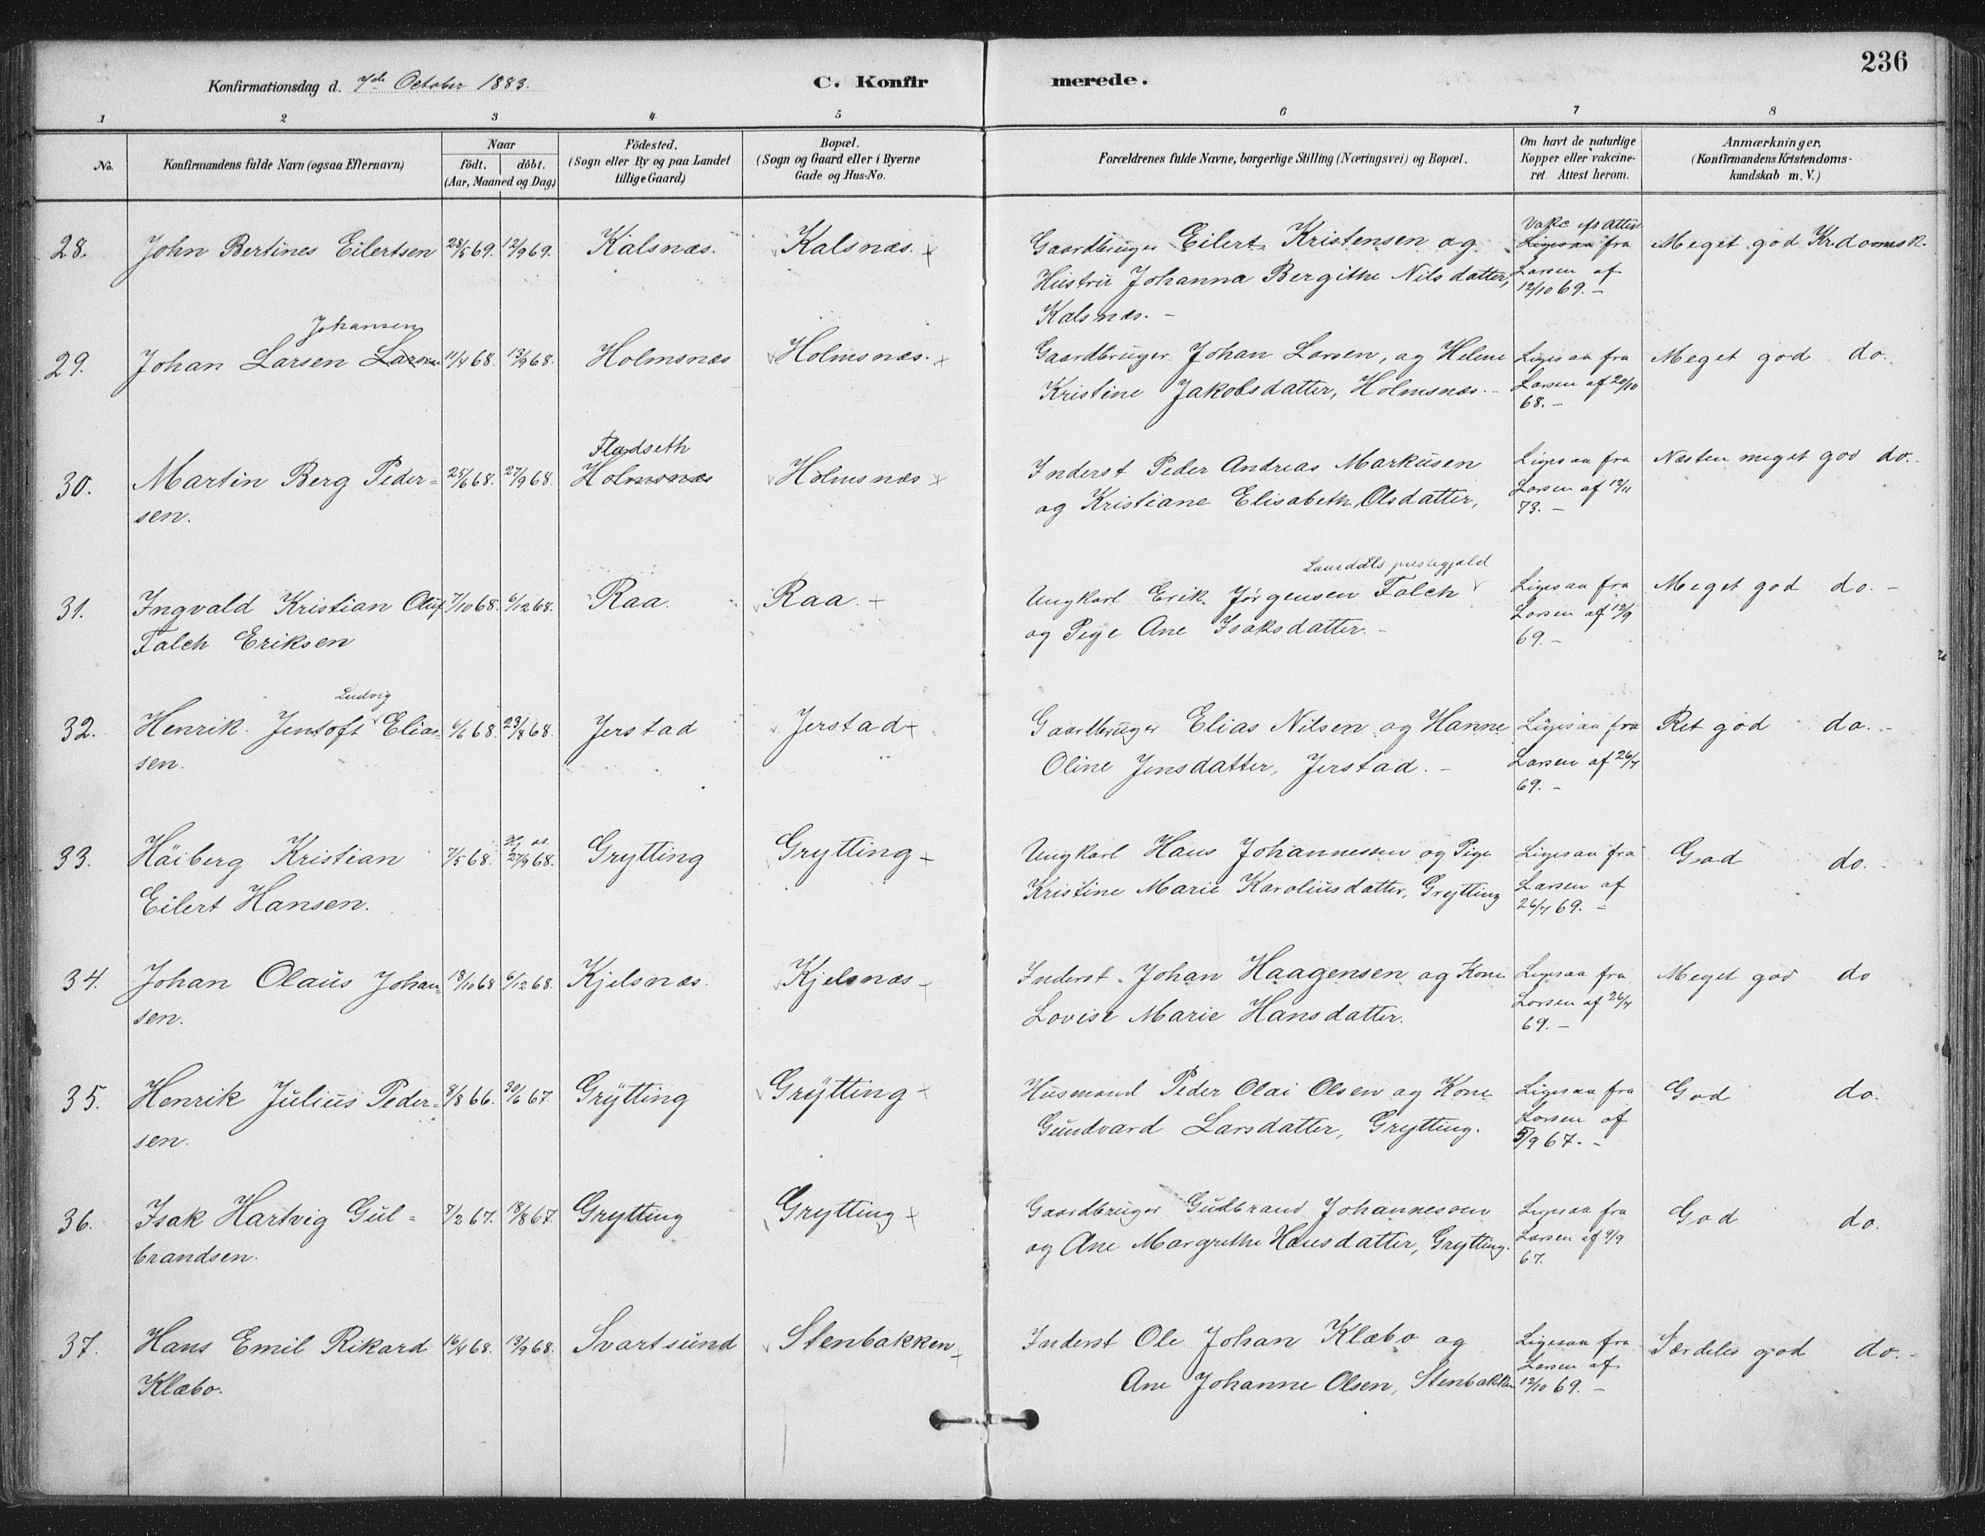 236
Konfirmationsdag d. 7de October 1883.
C. Konfirmerede.
1 2 3 4 5 6 7 8
No.
Konfirmandens fulde Navn (ogsaa Efternavn)
Naar
födt. döbt.
(Aar, Maaned og Dag)
Födested.
(Sogn eller By og paa Landet
tillige Gaard)
Bopæl.
(Sogn og Gaard eller i Byerne
Gade og Hus-No.
Forældrenes fulde Navne, borgerlige Stilling (Næringsvei) og Bopæl.
Om havt de naturlige
Kopper eller vakcine-
ret. Attest herom.
Anmærkninger.
(Konfirmandens Kristendoms-
kundskab m. V.)
28. John Bertines Eilertsen 28/5 69. 12/9 69. Kalsnæs. Kalsnæs. +
Gaardbruger Eilert Kristensen og
Hustru Johanna Bergithe Nilsdatter,
Kalsnæs. -
Vakc. Attest
Ligesaa fra
Larsen af
12/10 69. -
Meget god Kr.domsk.
29. Johan Larsen Larsen 11/4 68. 13/9 68. Holmsnæs Holmsnæs. +
Johansen
Gaardbruger Johan Larsen, og Helene
Kristine Jakobsdatter, Holmsnæs. -
Ligesaa fra
Larsen af 20/10
68. -
Meget god do.
30. Martin Berg Peder-
sen.
25/6 68. 27/9 68.
Fladseth
Holmsnæs
Holmsnæs +
Inderst Peder Andreas Markusen
og Kristiane Elisabeth Olsdatter,
Ligesaa fra
Larsen af 12/11
73. -
Næsten meget god do. -
31. Ingvald Kristian Oluf
Falch Eriksen
7/10 68. 6/12 68. Raa. Raa. +
præstegjeld
Ungkarl Erik Jørgensen Falch
og Pige Ane Isaksdatter. -
Ligesaa fra
Larsen af 12/9
69. -
Meget god do. -
32. Henrik Jentoft Elias-
Ludvig
sen.
6/6 68. 23/8 68. Jerstad Jerstad +
Gaardbruger Elias Nilsen og Hanne
Oline Jensdatter, Jerstad. -
Ligesaa fra
Larsen af 26/4
69. -
Ret god do. -
33. Häiberg Kristian
Eilert Hansen.
7/5 68. 27/9 68. Grytting Grytting +
Ungkarl Hans Johannessen og Pige
Kristine Marie Karoliusdatter, Grytting
Ligesaa fra
Larsen af
26/4 69. -
God do. -
34. Johan Olaus Johan-
sen.
18/10 68 6/12 68. Kjelsnæs. Kjelsnæs +
Inderst Johan Haagensen og Kone
Lovise Marie Hansdatter.
Ligesaa fra
Larsen af 26/4
69. -
Meget god do
35. Henrik Julius Peder-
sen.
8/8 66. 30/6 67. Grytting Grytting +
Husmand Peder Olai Olsen og Kone
Gundvard Larsdatter, Grytting.
Ligesaa fra
Larsen af
5/9 67. -
God do.
36. Isak Hartvig Gul-
brandsen.
7/2 67. 18/8 67. Grytting Grytting +
Gaardbruger Gudbrand Johannessen
og Ane Margrethe Hansdatter, Grytting.
Ligesaa fra
Larsen af
67.
God do.
37. Hans Emil Rikard
Klæbo.
16/4 68. 13/9 68. Svartsund Stenbakken +
Inderst Ole Johan Klæbo og
Ane Johanne Olsen, Stenbakken
Ligesaa fra
Larsen af
12/10 69. -
Særdeles god do. -